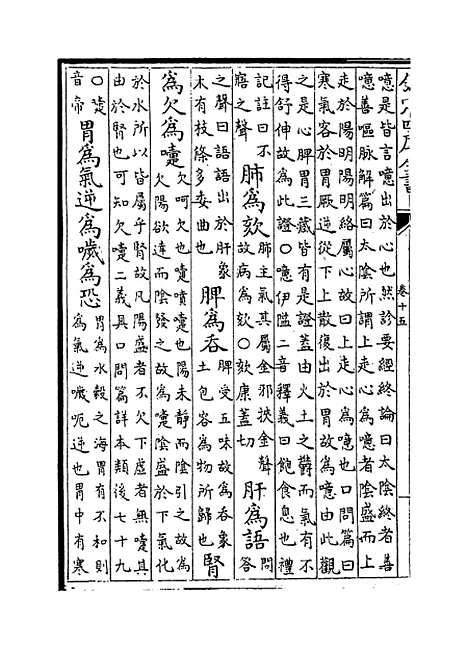 欽定四庫全書
卷十五
噫是皆言噫出於心也然診要經終論曰太陰終者善
噫善嘔脉解篇曰太陰所謂上走心為噫者陰盛而上
走於陽明陽明絡屬心故曰上走心為噫也口問篇曰
寒氣客於胃厥逆從下上散復出於胃故為噫由此觀
之是心脾胃三臟皆有是證蓋由火土之鬱而氣有不
得舒伸故為此證○噫伊隘二音釋義曰飽食息也禮
記註曰不寤之聲 肺為欬 肺主氣其屬金邪挾金聲故病為欬○欬康蓋切 肝為語 問答
之聲曰語語出於肝象木有枝條多委曲也 脾為吞 脾受五味故為吞象土包容為物所歸也 腎
為欠為嚏 欠呵欠也嚏噴嚏也陽未静而陰引之故為
欠陽欲達而陰發之故為嚏陰盛於下氣化
於水所以皆屬乎腎故凡陽盛者不欠下虛者無嚏其
由於腎也可知欠嚏二義具口問篇詳本類後七十九
○嚏音帝 胃為氣逆為噦為恐 胃為水穀之海胃有不和則
為氣逆噦呃逆也胃中有寒